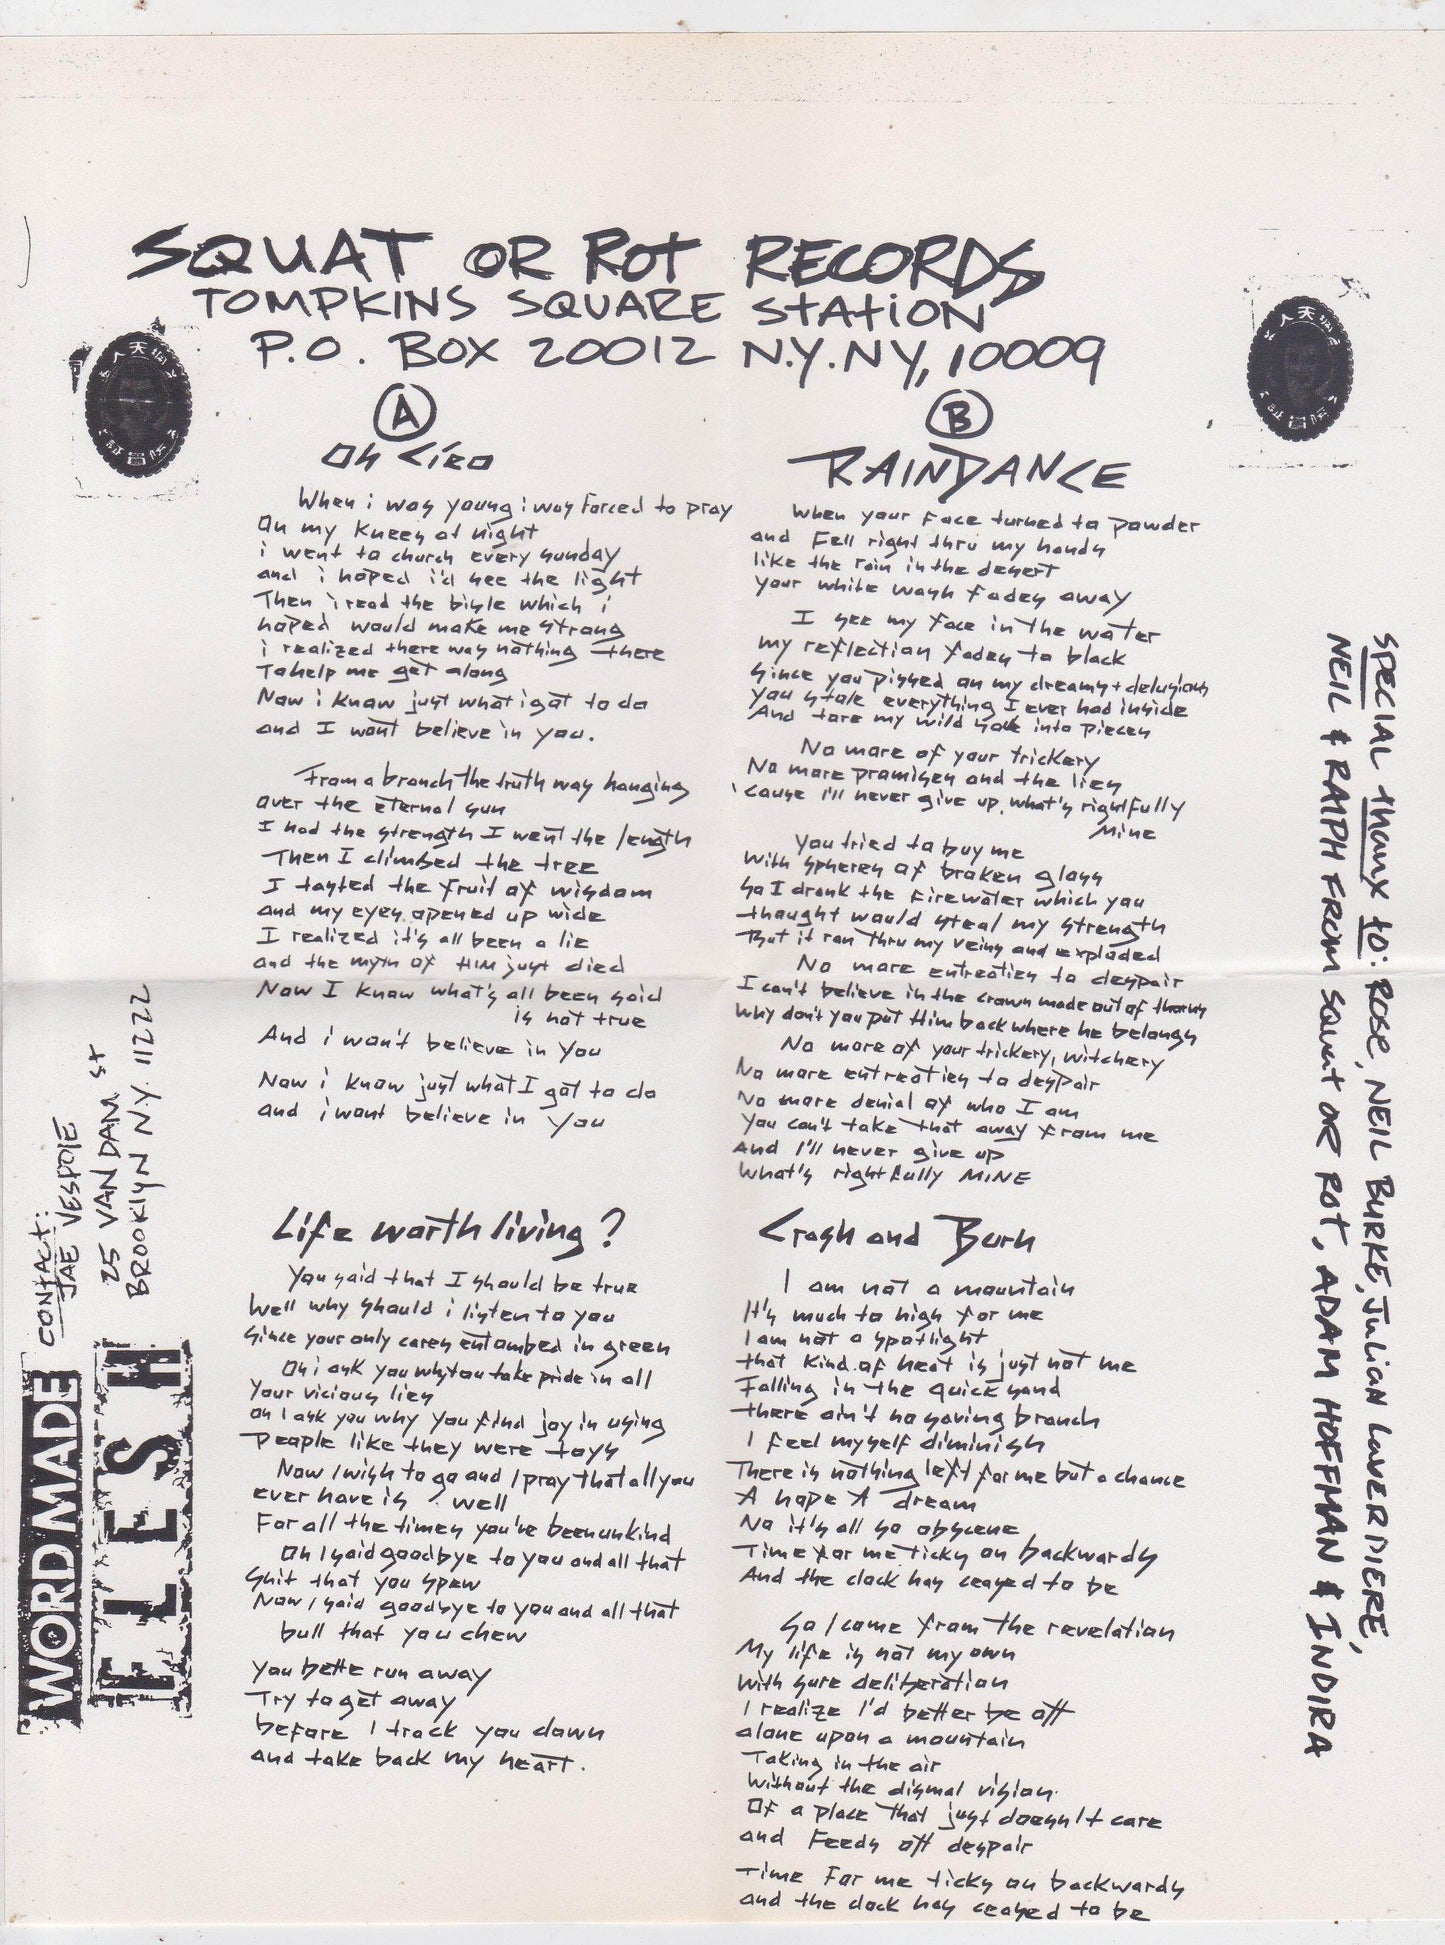 SQUAT OR ROT RECORDS
TOMPKINS SQUARE STATION
P.O. BOX 20012 N.Y. NY, 10009
A
Oh Cieo
When i was young i was forced to pray
On my knees at night
i went to church every sunday
and i hoped i'd see the light
Then i read the bible which i
hoped would make me strong
i realized there was nothing there
To help me get along
Now i know just what i got to do
and I wont believe in you.
From a branch the truth was hanging
over the eternal sun
I had the strength I went the length
Then I climbed the tree
I tasted the fruit of wisdom
and my eyes opened up wide
I realized it's all been a lie
and the myth of HIM just died
Now I know what's all been said
is not true
And i won't believe in you
Now i know just what I got to do
and i wont believe in you
Life worth living?
You said that I should be true
Well why should i listen to you
Since your only cares entombed in green
Oh i ask you why you take pride in all
Your vicious lies
oh I ask you why you find joy in using
People like they were toys
Now I wish to go and I pray that all you
ever have is well
For all the times you've been unkind
Oh I said goodbye to you and all that
Shit that you spew
Now I said goodbye to you and all that
bull that you chew
You bette run away
Try to get away
before I track you down
and take back my heart.
B
RAINDANCE
When your face turned to powder
and Fell right thru my hands
like the rain in the desert
your white wash fades away
I see my face in the water
my reflection fades to black
Since you pissed on my dreams + delusions
You stole everything I ever had inside
And tore my wild side into pieces
No more of your trickery
No more promises and the lies
'cause I'll never give up, what's rightfully
Mine
You tried to buy me
With spheres of broken glass
So I drank the firewater which you
thought would steal my strength
But it ran thru my veins and exploded
No more entreaties to despair
I can't believe in the crown made out of thorns
Why don't you put Him back where he belongs
No more of your trickery, witchery
No more entreaties to despair
No more denial of who I am
You can't take that away from me
And I'll never give up
What's rightfully MINE
Crash and Burn
I am not a mountain
It's much to high for me
I am not a spotlight
that kind of heat is just not me
Falling in the quick sand
there ain't no saving branch
I feel myself diminish
There is nothing left for me but a chance
A hope A dream
No it's all so obscene
Time for me ticks on backwards
And the clock has ceased to be
So I come from the revelation
My life is not my own
With sure deliberation
I realize I'd better be off
alone upon a mountain
Taking in the air
Without the dismal vision
Of a place that just doesn't care
and Feeds off despair
Time For me ticks on backwards
and the clock has ceased to be
SPECIAL thanx to: ROSE, NEIL BURKE, JULIAN LAVERDIERE,
NEIL & RALPH FROM SQUAT OR ROT, ADAM HOFFMAN & INDIRA
WORD MADE
FLESH
CONTACT:
JAE VESPOIE
25 VAN DAM ST
BROOKLYN N.Y. 11222